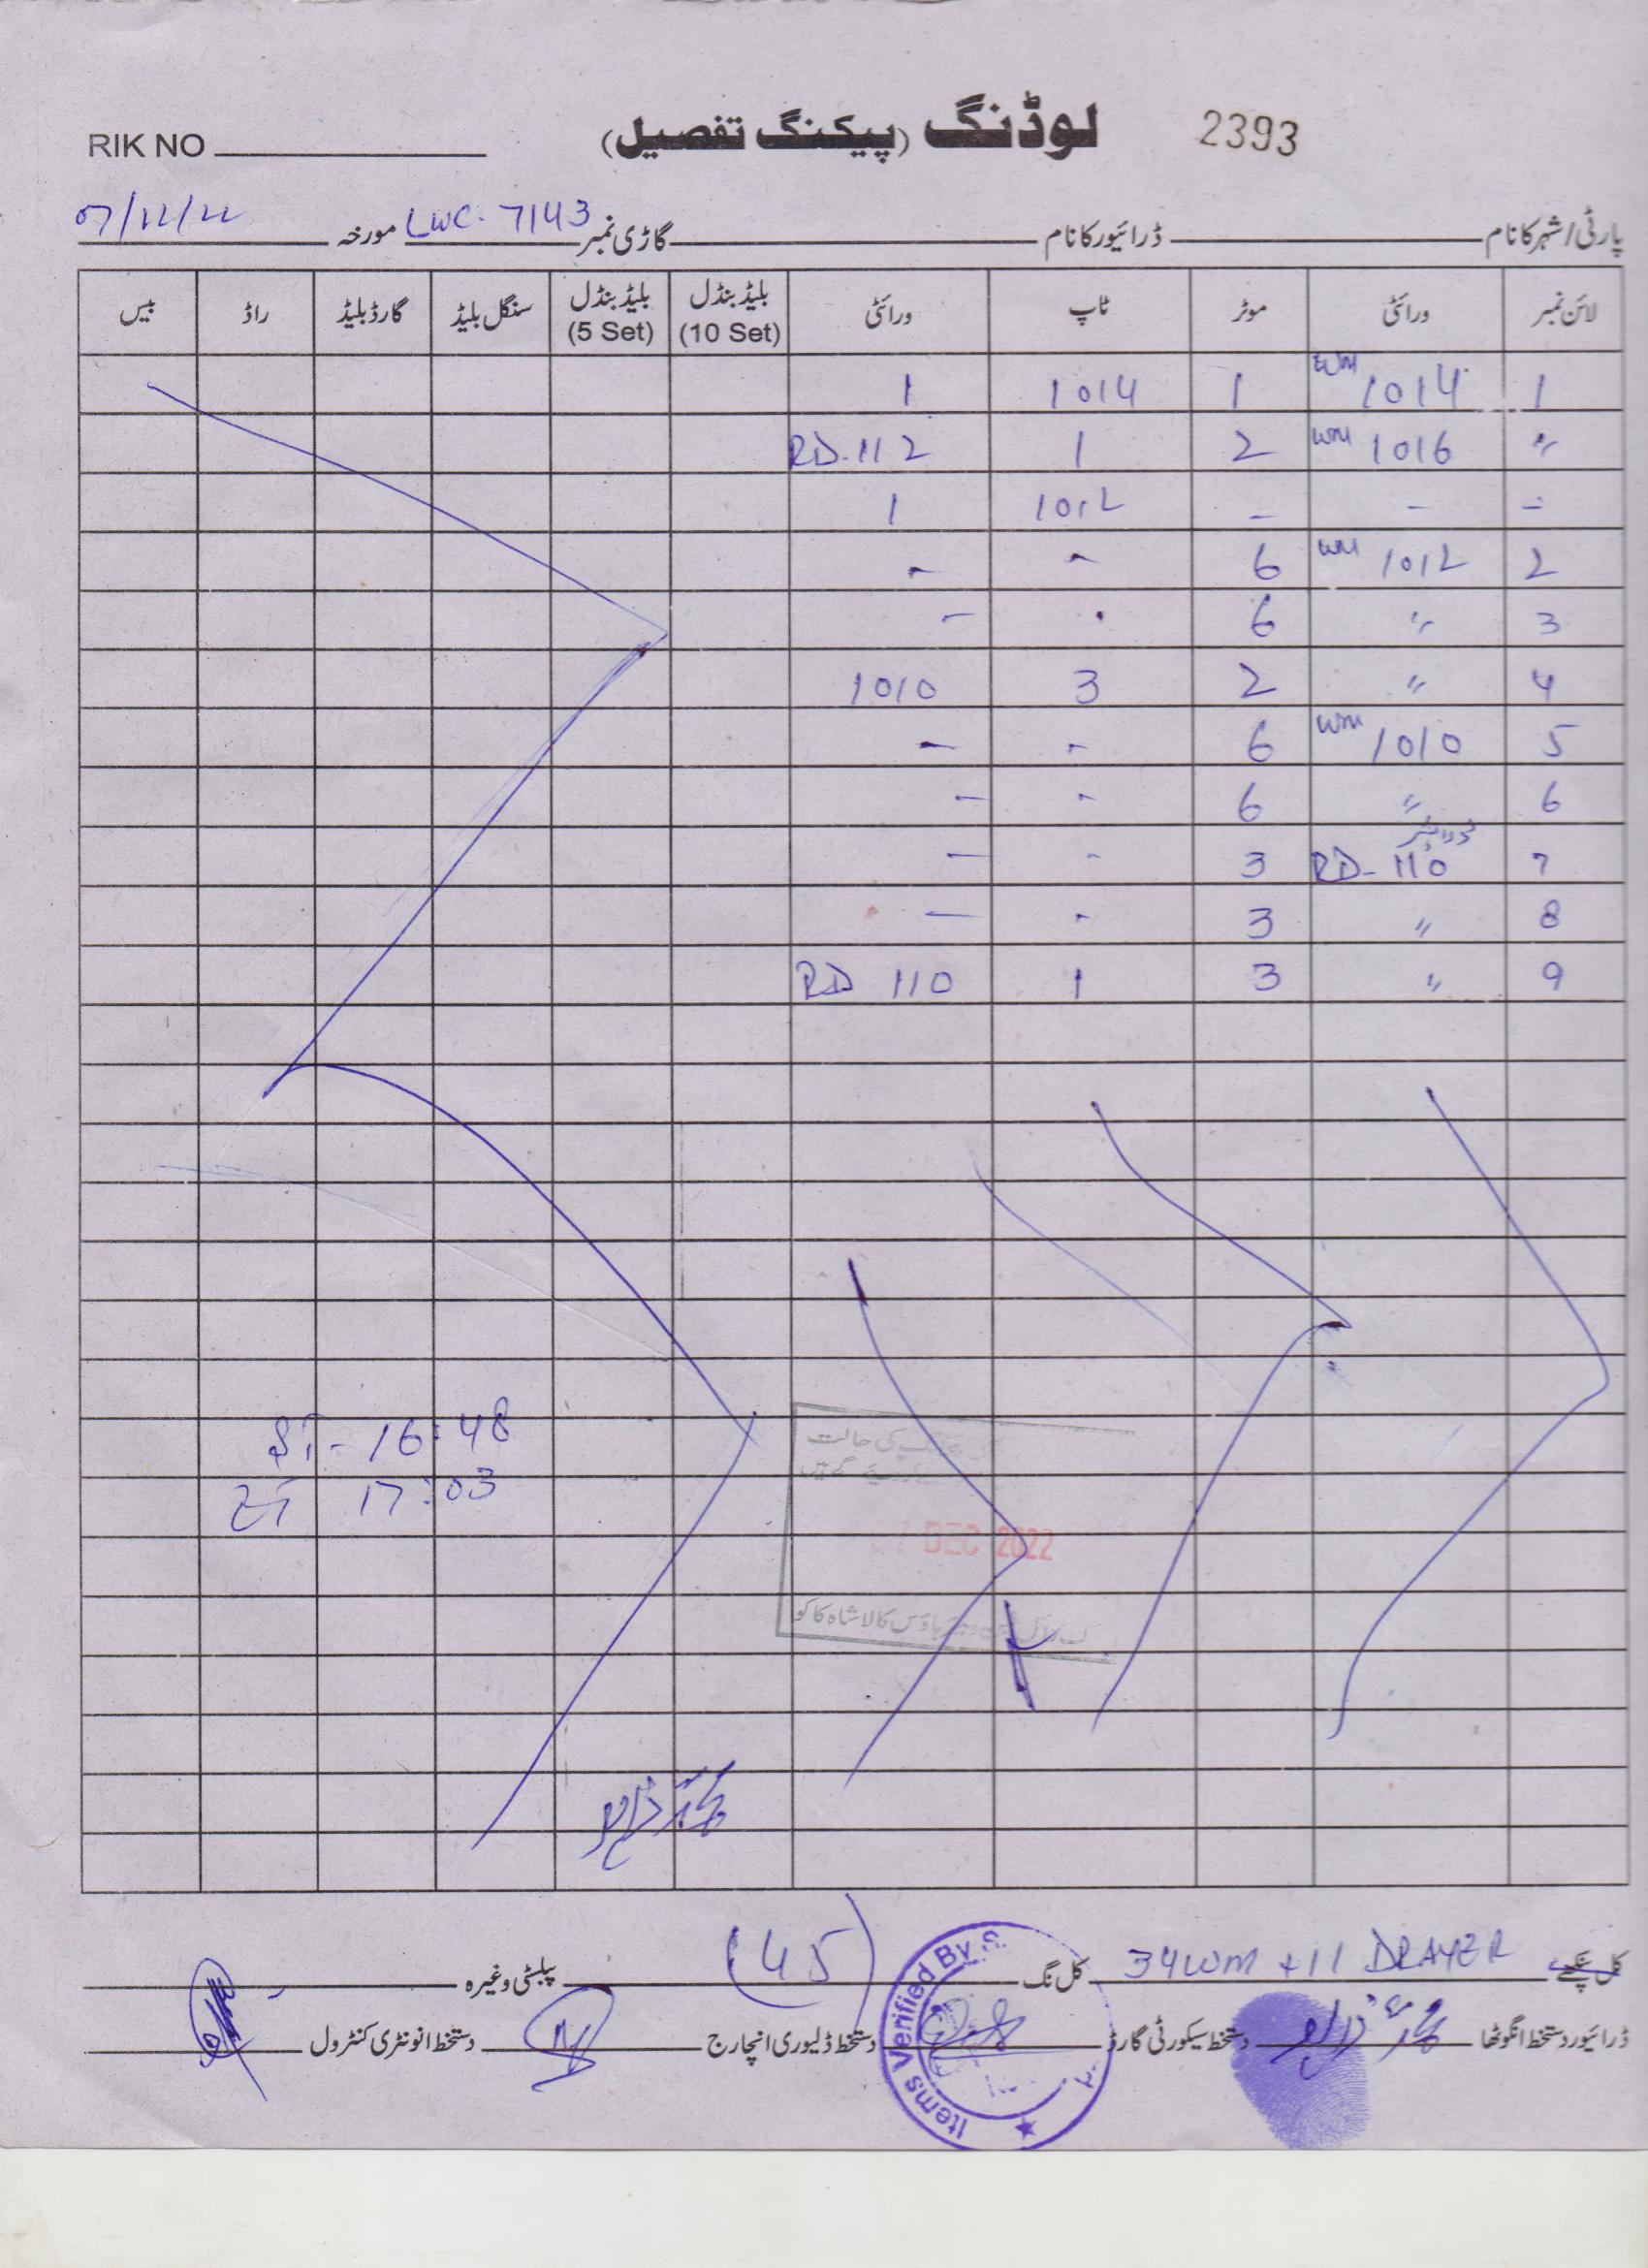 RIK NO
لوڈنگ (پیکنگ تفصیل)
2393
پارٹی/شہر کا نام
ڈرائیور کا نام
گاڑی نمبر LWC. 7143
مورخہ 07/12/22
لائن نمبر ورائٹی موٹر ٹاپ ورائٹی بلیڈ بنڈل (10 Set) بلیڈ بنڈل (5 Set) سنگل بلیڈ گارڈ بلیڈ راڈ بیس
1 WM 1014 1 1014 1
〃 WM 1016 2 1 RD-112
- - - 1012 1
2 WM 1012 6 - -
3 〃 6 - -
4 〃 2 3 1010
5 WM 1010 6 - -
6 〃 6 - -
7 RD-110 3 - -
8 〃 3 - -
9 〃 3 1 RD 110
ST - 16:48
ET 17:03
کی حالت
7 DEC 2022
ہاؤس کالا شاہ کاکو
کل پنکھے 34 WM + 11 DRAYER
کل نگ (45)
پبلسٹی وغیرہ
ڈرائیور دستخط انگوٹھا
دستخط سیکورٹی گارڈ
دستخط ڈلیوری انچارج
دستخط انونٹری کنٹرول
Items Verified By